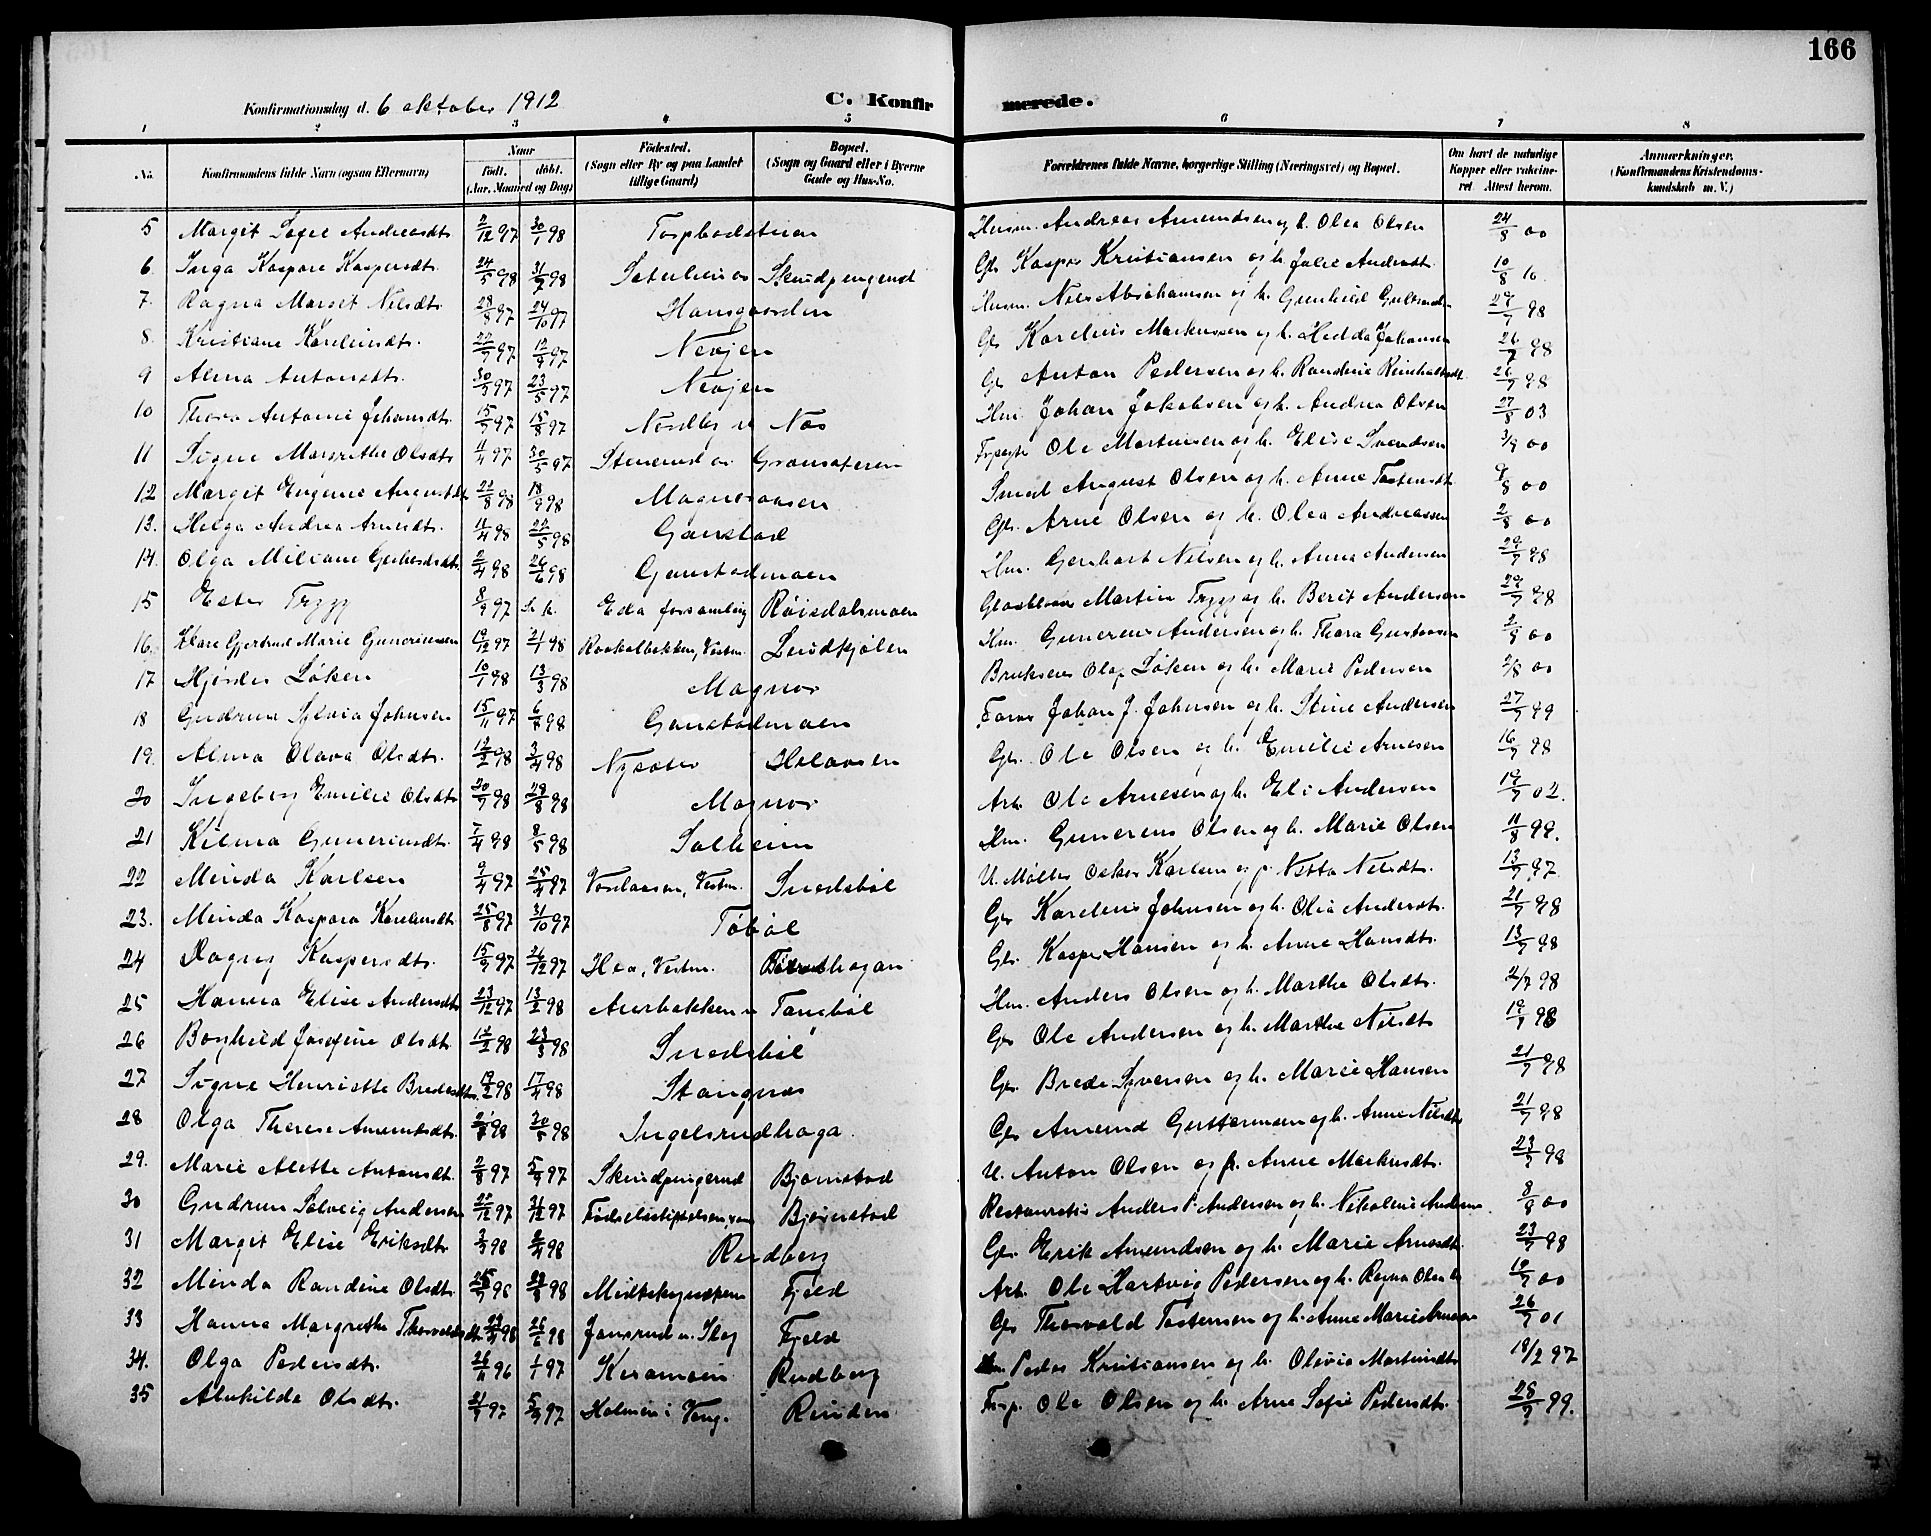 166
Konfirmationsdag d. 6 oktober 1912
C. Konfirmerede.
1 2 3 4 5 6 7 8
No. Konfirmandens fulde Navn (ogsaa Efternavn) Naar født. døbt. (Aar, Maaned og Dag) Fødested. (Sogn eller By og paa Landet tillige Gaard) Bopæl. (Sogn og Gaard eller i Byerne Gade og Hus-No. Forældrenes fulde Navne, borgerlige Stilling (Næringsvei) og Bopæl. Om havt de naturlige Kopper eller vakcineret. Attest herom. Anmærkninger. (Konfirmandens Kristendomskundskab m. V.)
5 Margit Sofie Andreasdtr 2/12 97 30/1 98 Torpbodstuen Husm. Andreas Amundsen og h. Olea Olsen 24/8 00
6. Inga Kaspare Kaspersdtr. 24/5 98 31/7 98 Skindpengerud Gbr Kasper Kristiansen og h. Julie Andersdtr. 10/8 10
7. Ragna Marget Nilsdtr 28/8 97 24/10 97 Hansgaarden Husm. Nils Abrahamsen og h. Gunhild 29/7 98
8. Kristiane Karelinsdtr. 22/7 97 12/9 97 Nevjen Gbr Karelius Markussen og h. Hedda Johansen 26/7 98
9 Alma Antonsdtr. 30/3 97 23/5 97 Nevjen Gbr Anton Pedersen og h. Randine 26/7 98
10 Thora Antonie Johansdtr. 15/7 97 15/8 97 Nordby Nas Hm. Johan Jakobsen og h. Andrea Olsen 27/8 03
11 Signe Margrethe Olsdtr 11/4 97 30/5 97 Stenerud Gransæteren Ole Martinsen og h. Elise Svendsen 3/9 00
12 Margit Eugenie Augustdtr 22/8 98 18/9 98 Magnoraasen Smed August Olsen og h. Anne Tostensdtr 9/8 00
13. Helga Andrea Arnesdtr. 11/4 98 22/5 98 Gaustad Gbr. Arne Olsen og h. Olea Andreassen 2/8 00
14. Olga Miliane Gerhardsdtr. 2/4 98 26/6 98 Gaustadmoen Hm. Gerhart Nilsen og h. Anna Andersen 29/7 98
15 Ester Trygg 8/9 97 Eda forsamling Røisdalsmoen Martin Trygg og h. Berit Andersen 29/7 98
16. Klare Gjertrud Marie Guneriussen 19/12 97 2/1 98 Lundkjølen Hm. Gunerius Andersen og h. Thora Gustavsen 2/8 00
17 Hjørdis Løken 10/1 98 13/3 98 Magnor Brukseier Olaf Løken og h. Marie Pedersen 2/8 00
18 Gudrun Sylvia Johnsen 15/11 97 6/8 98 Gaustadmoen Johan J. Johnsen og h. Stine Andersen 27/7 99
19. Alma Olava Olsdtr. 12/2 98 3/4 98 Nysæter Helaasen Gbr. Ole Olsen og h. Emilie Arnesen 16/7 98
20 Ingeborg Emilie Olsdtr 20/7 98 28/8 98 Magnor Arb. Ole Arnesen og h. Eli Andersen 19/7 02.
21 Kilma Gunerinsdtr. 7/4 98 8/5 98 Solheim Hm. Gunerius Olsen og h. Marie Olsen 11/8 99.
22 Minda Karlsen 9/4 97 25/4 97 Snedsbøl U. Møller Oskar Karlsen og p. Netta Nilsdtr. 13/7 97
23. Minda Kaspara Karelinsdtr 25/8 97 31/10 97 Tøbøl Gbr Karelius Johnsen og h. Olia Andersdtr. 21/7 98
24 Dagny Kaspersdtr. 15/9 97 26/12 97 Haa, Vestm. Gbr. Kasper Hansen og h. Anne Hansdtr. 13/7 98
25 Hanna Elise Andersdtr 23/12 97 13/2 98 Aurbakken Tansbøl Hm. Anders Olsen og h. Marthe Olsdtr. 2/7 98
26 Borghild Josefine Olsdtr. 12/2 98 23/3 98 Snedsbøl Gbr Ole Andersen og h. Marthe Nilsdtr 19/7 98
27 Signe Henriette Bredesdtr. 19/2 98 17/4 98 Stangnes Gbr. Brede Syversen og h. Marie Hansen 21/7 98
28 Olga Therese Amundsdtr. 98 30/5 98 Ingelsrudhaga. Gbr Amund Guttormsen og h. Anne Nilsdtr 21/7 98
29. Marie Alette Antonsdtr. 2/8 97 5/9 97 Skindpengerud Bjørnstad U. Anton Olsen og p. Anne Markusdtr. 23/7 98
30 Gudrun Solveig Andersen 97 97 Fødselsstiftelsen Bjørnstad Restauratør Anders P. Andersen og h. Nikoline Andersen 8/8 00
31 Margit Elise Eriksdtr. 3/3 98 8/4 98 Rudberg Gbr. Erik Amundsen og h. Marie Arnesdtr. 23/7 98
32 Minda Randine Olsdtr. 96 98 Fjeld Arb. Ole Hartvig Pedersen og h. Ragna Olsdtr 19/7 00
33 Hanna Margrethe Thorvaldsdtr. 98 98 Jonsrud Fjeld Gbr Thorvald Tostensen og h. Anne Marie 26/7 01
34. Olga Pedersdtr. 26/11 96 1/1 97 Keramoin Rudberg Peder Kristiansen og h. Olivia Martinsdtr 18/2 97
35 Alvhilda Olsdtr. 97 5/9 97 Holmen i Ving. Rinden Forp. Ole Olsen og h. Arne Sofie Pedersdtr. 28/7 99.